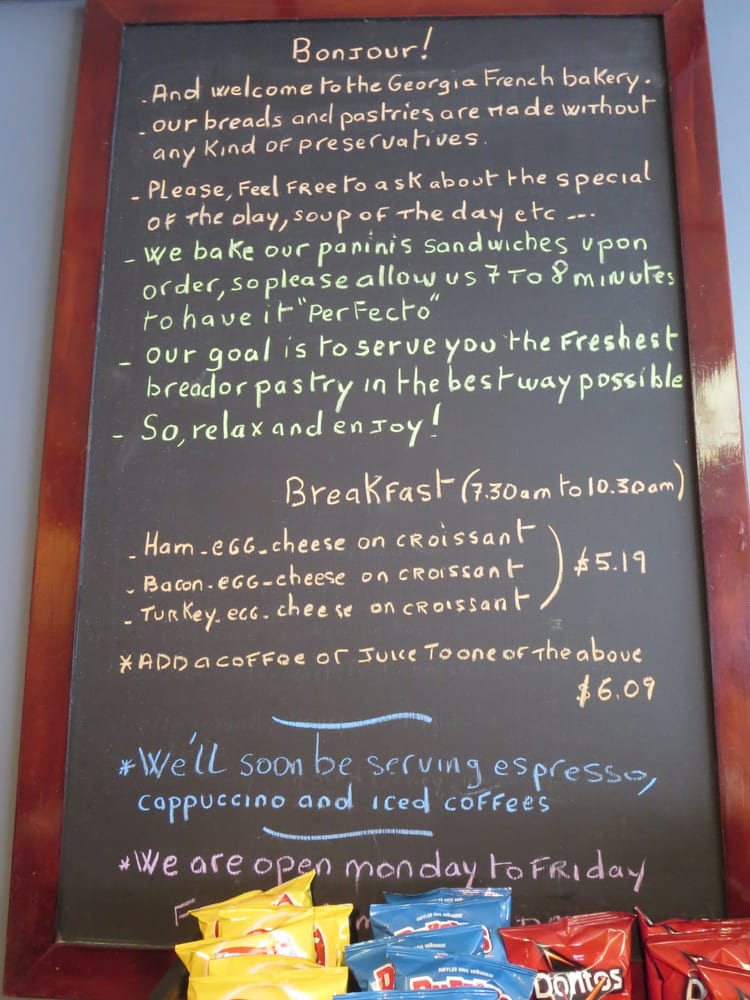 Bonjour!
- And welcome to the Georgia French bakery.
- our breads and pastries are made without
any kind of preservatives.
- Please, feel free to ask about the special
of the day, soup of the day etc ---
- We bake our paninis sandwiches upon
order, so please allow us 7 to 8 minutes
to have it "Perfecto"
- our goal is to serve you the freshest
bread or pastry in the best way possible
- So, relax and enjoy!
Breakfast (7.30am to 10.30am)
- Ham-egg-cheese on croissant
- Bacon-egg-cheese on croissant
- Turkey-egg-cheese on croissant
) $5.19
*ADD a coffoe or juice to one of the above
$6.09
*We'll soon be serving espresso,
cappuccino and iced coffees
*We are open monday to Friday
RUFFLES
Doritos